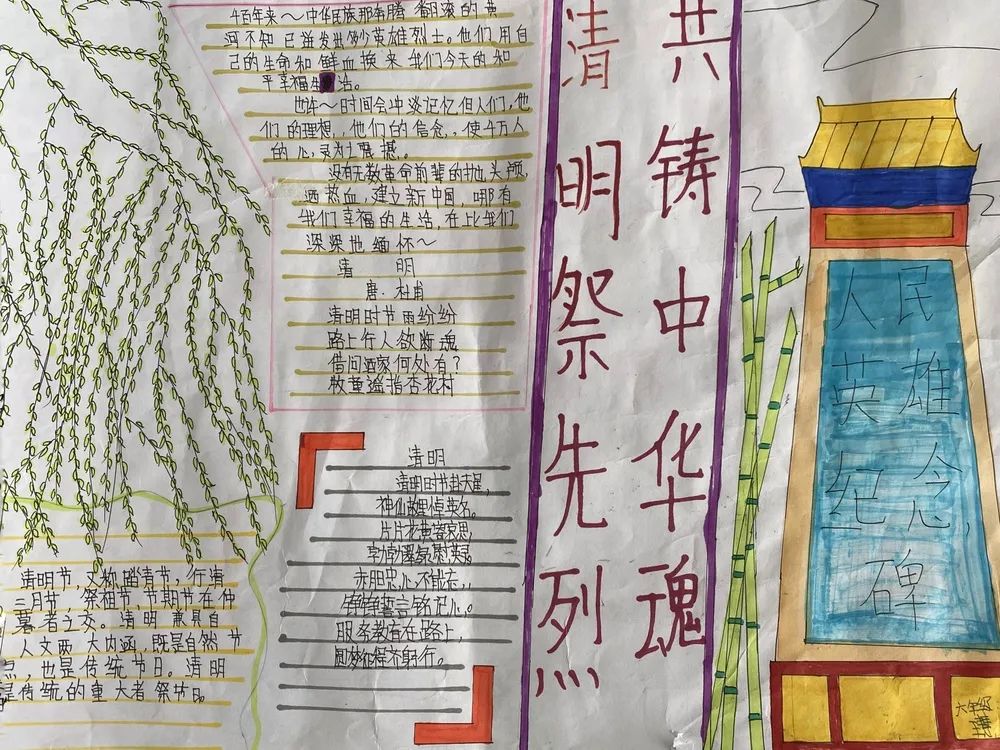 百年来～中华民族那奔腾 翻滚的黄
河不知 已迸发出 英雄烈士。他们用自
己的生命和 鲜血换来 我们今天的 和
平幸福生 活。
也许～时间会冲淡记忆但人们,他
们 的理想,他们的信念,,使 万人
的心灵为之震撼。
没有无数革命前辈的抛头颅,
洒热血,建立新中国,哪有
我们幸福的生活,在此我们
深深地缅怀～
清 明
唐·杜甫
清明时节雨纷纷
路上行人欲断魂
借问酒家何处有?
牧童遥指杏花村
清明
清明时节赴天星,
神仙故里悼英名。
片片花黄 哀思,
字字
赤胆忠心不能忘,,
铮铮誓言铭记心。
服务教育在路上,
圆梦征程齐前行。
清明节,又称踏青节,行清
三月节 祭祖节,节期节在仲
暮 者之交。清明 兼具自
人文两 大内涵,既是自然 节
点,也是传统节日。清明
是传统的重大者 祭
共铸中华魂
清明祭先烈
人民
英雄
纪念,
碑
六年级